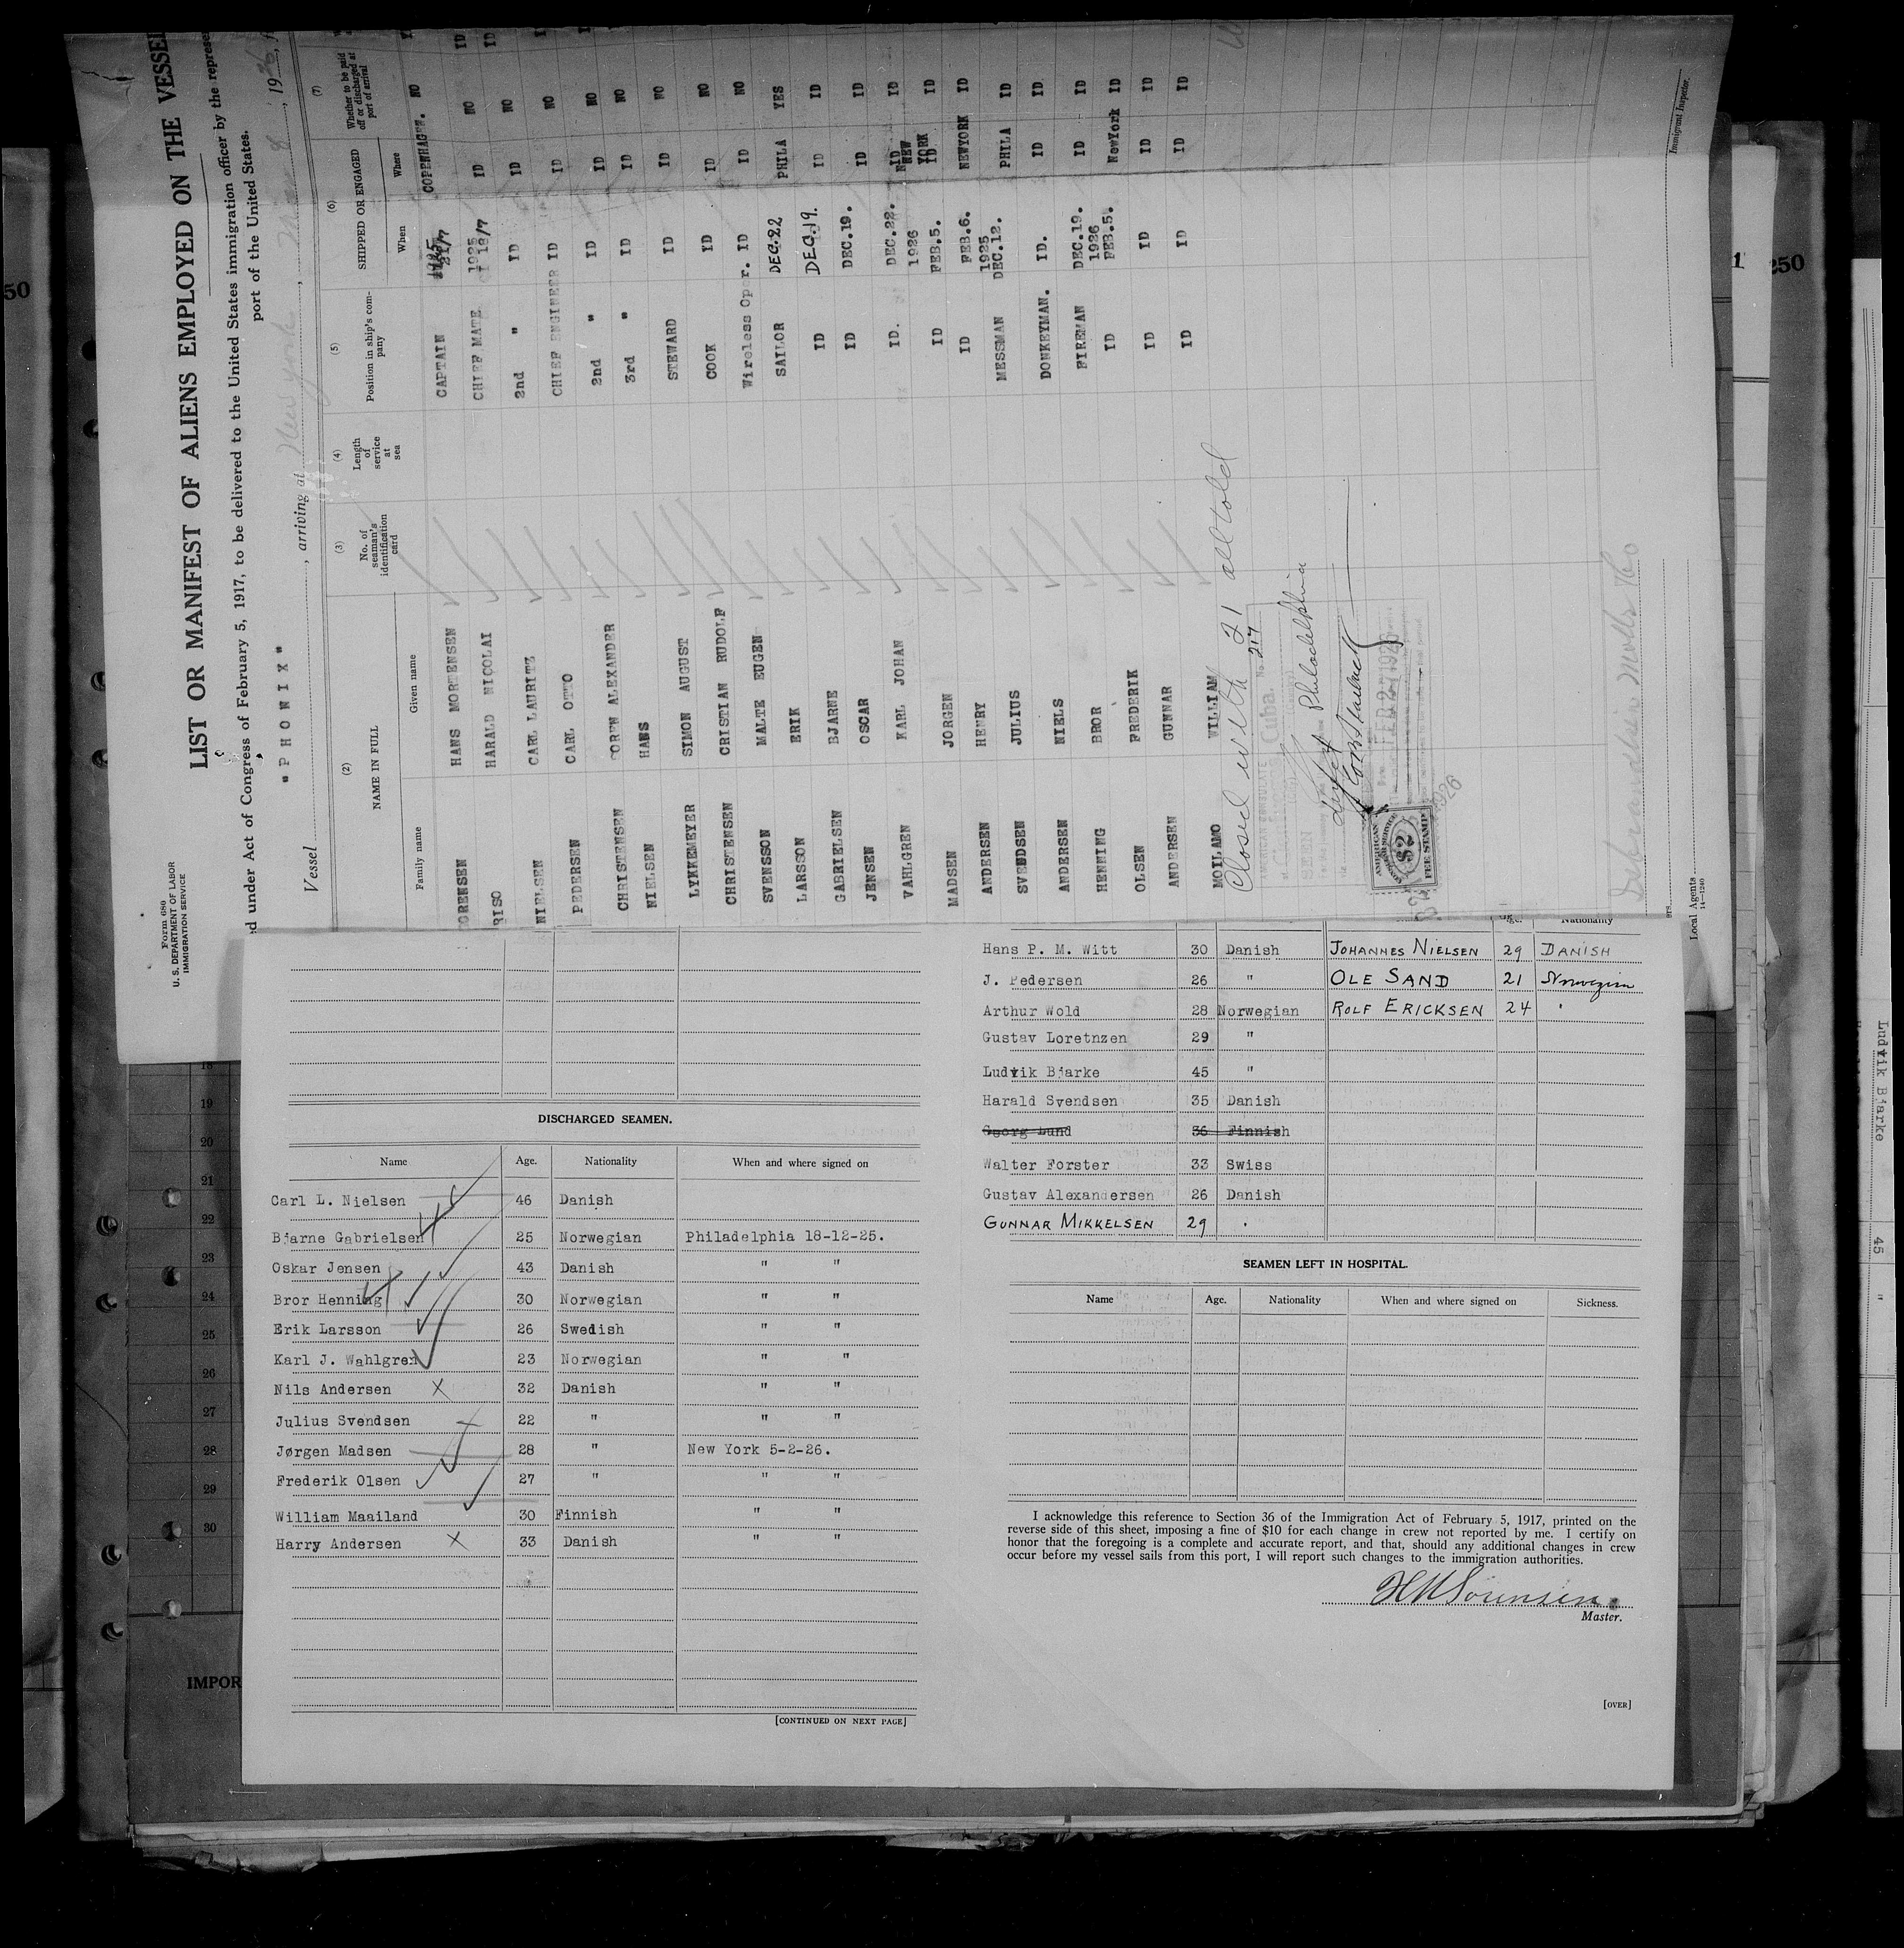 Form 680
U. S. DEPARTMENT OF LABOR
IMMIGRATION SERVICE
LIST OR MANIFEST OF ALIENS EMPLOYED ON THE VESSEL
under Act of Congress of February 5, 1917, to be delivered to the United States immigration officer by the represe
port of the United States.
Vessel "PHONIX", arriving at New York, 1926
(2) (3) (4) (5) (6) (7)
NAME IN FULL
Family name Given name
No. of seaman's identification card
Length of service at sea
Position in ship's company
SHIPPED OR ENGAGED
When Where
Whether to be paid off or discharged at port of arrival
ORENSEN HANS MORTENSEN CAPTAIN 1925 COPENHAGEN. NO
RISO HARALD NICOLAI CHIEF MATE 1925 18/7 ID NO
NIELSEN CARL LAURITZ 2nd " ID ID NO
PEDERSEN CARL OTTO CHIEF ENGINEER ID ID NO
CHRISTENSEN SOREN ALEXANDER 2nd " ID ID NO
NIELSEN HANS 3rd " ID ID NO
LYNKEMEYER SIMON AUGUST STEWARD ID ID NO
CHRISTENSEN CRISTIAN RUDOLF COOK ID ID NO
SVENSSON MALTE EUGEN Wireless Oper. ID ID NO
LARSSON ERIK SAILOR DEC.22 PHILA YES
GABRIELSEN BJARNE ID DEC.19. ID ID
JENSEN OSCAR ID DEC.19. ID ID
VAHLGREN KARL JOHAN ID. DEC.22. ID ID
MADSEN JORGEN ID 1926 FEB.5. NEW YORK ID
ANDERSEN HENRY ID FEB.6. NEWYORK ID
SVENDSEN JULIUS MESSMAN 1925 DEC.12. PHILA ID
ANDERSEN NIELS DONKEYMAN. ID. ID ID
HENNING BROR FIREMAN DEC.19. ID ID
OLSEN FREDERIK ID 1926 FEB.5. NewYork ID
ANDERSEN GUNNAR ID ID ID ID
MOILAMO WILLIAM ID ID ID ID
Closed with 21 all told
217
Cuba.
SEEN
Philadelphia
FEB 27 1926
AMERICAN CONSULAR SERVICE
$2
FEE STAMP
Immigrant Inspector.
Local Agents
14-1240
DISCHARGED SEAMEN.
Name Age. Nationality When and where signed on
Carl L. Nielsen 46 Danish
Bjarne Gabrielsen 25 Norwegian Philadelphia 18-12-25.
Oskar Jensen 43 Danish " "
Bror Henning 30 Norwegian " "
Erik Larsson 26 Swedish " "
Karl J. Wahlgren 23 Norwegian " "
Nils Andersen 32 Danish " "
Julius Svendsen 22 " " "
Jørgen Madsen 28 " New York 5-2-26.
Frederik Olsen 27 " " "
William Maailand 30 Finnish " "
Harry Andersen 33 Danish " "
[CONTINUED ON NEXT PAGE]
Age. Nationality
Hans P. M. Witt 30 Danish JOHANNES NIELSEN 29 DANISH
J. Pedersen 26 " OLE SAND 21 Norwegian
Arthur Wold 28 Norwegian ROLF ERICKSEN 24 "
Gustav Loretnzen 29 "
Ludvik Bjarke 45 "
Harald Svendsen 35 Danish
Georg Lund 36 Finnish
Walter Forster 33 Swiss
Gustav Alexandersen 26 Danish
GUNNAR MIKKELSEN 29 "
SEAMEN LEFT IN HOSPITAL.
Name Age. Nationality When and where signed on Sickness.
I acknowledge this reference to Section 36 of the Immigration Act of February 5, 1917, printed on the
reverse side of this sheet, imposing a fine of $10 for each change in crew not reported by me. I certify on
honor that the foregoing is a complete and accurate report, and that, should any additional changes in crew
occur before my vessel sails from this port, I will report such changes to the immigration authorities.
HMSörensen
Master.
[OVER]
18
19
20
21
22
23
24
25
26
27
28
29
30
IMPOR
50
1
250
Ludvik Bjarke 45 "